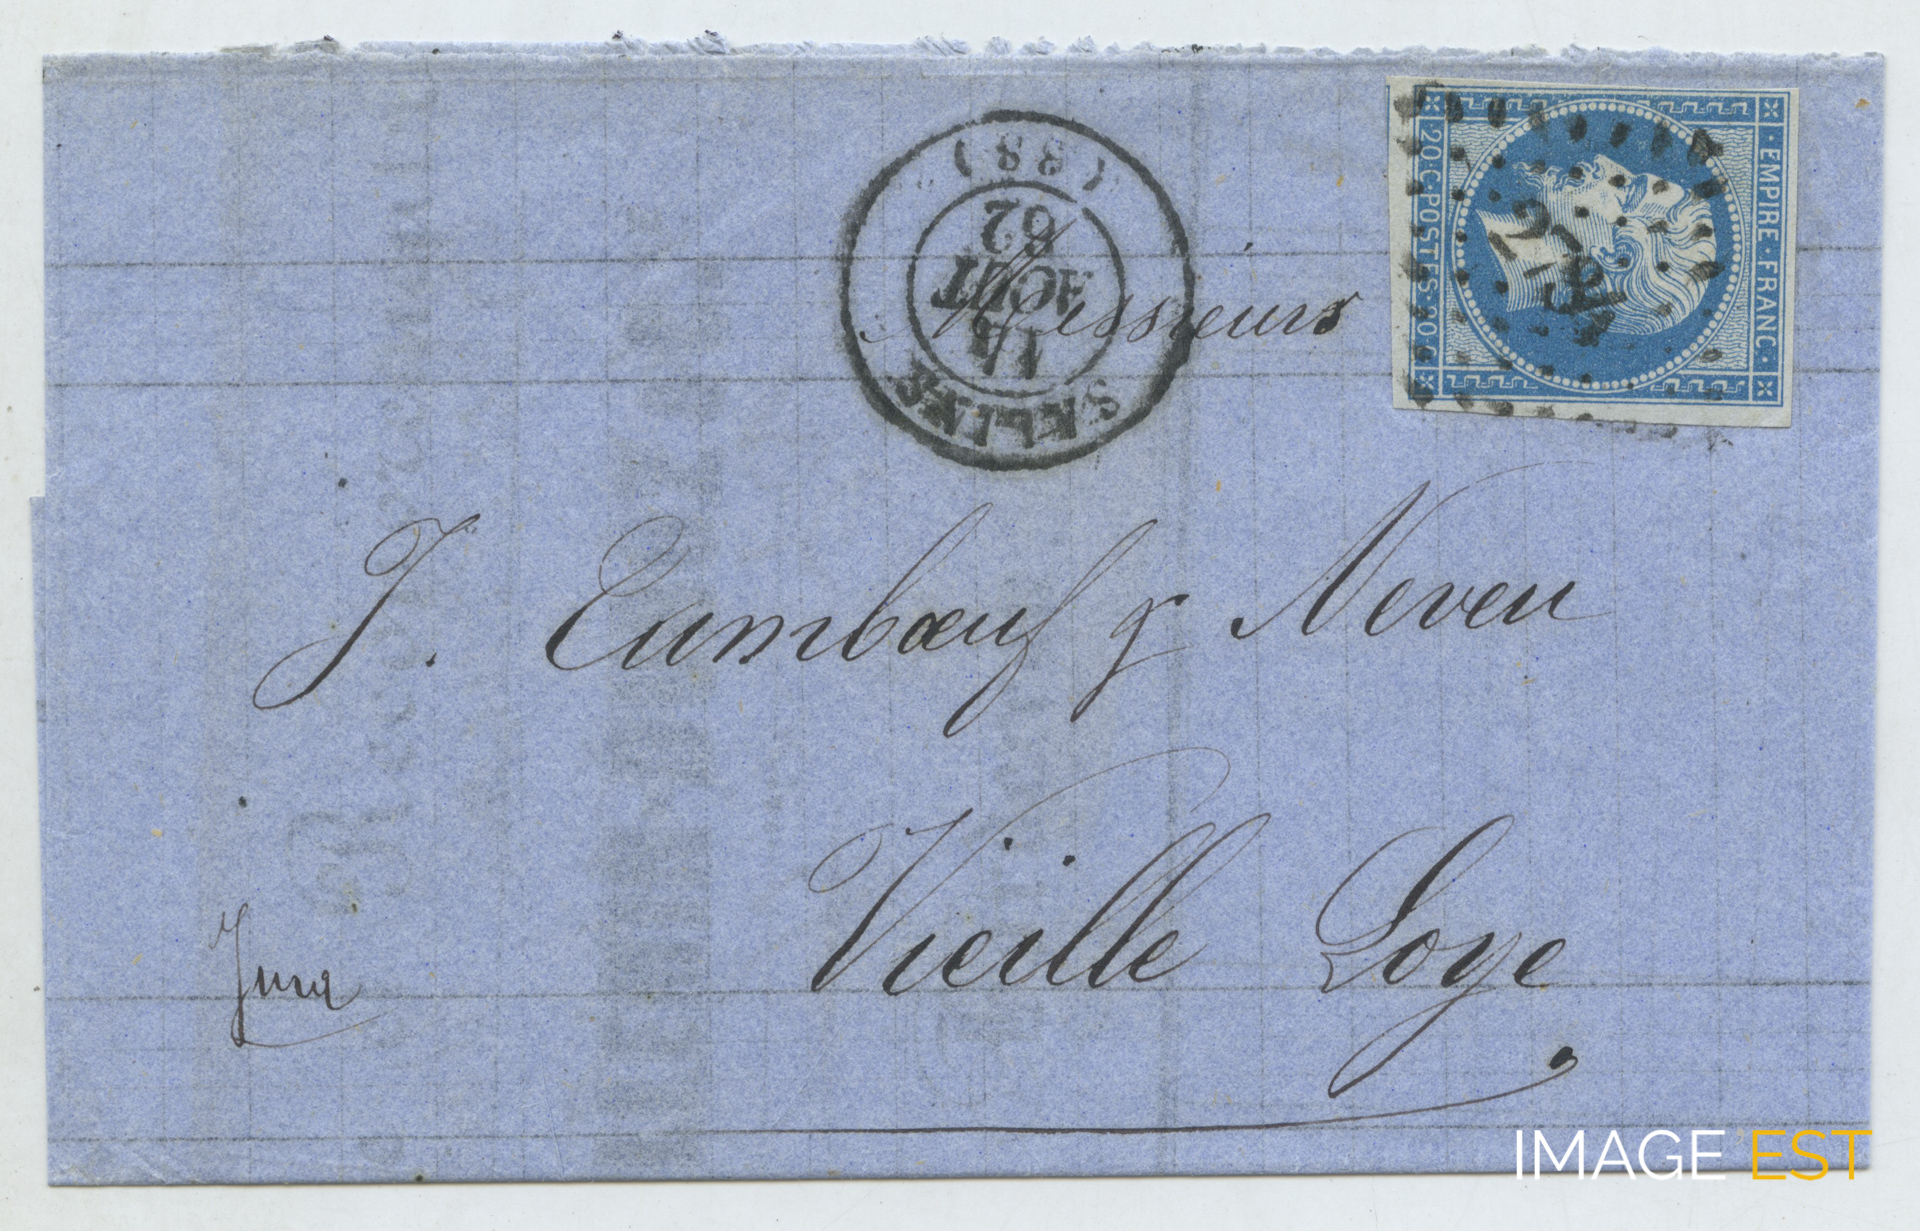 EMPIRE · FRANC ·
· 20 · C · POSTES · 20 C ·
SALINS
AOUT
62
(38)
Messieurs
J. Tumbœuf & Neveu
Vieille Loye
Jura
IMAGE EST